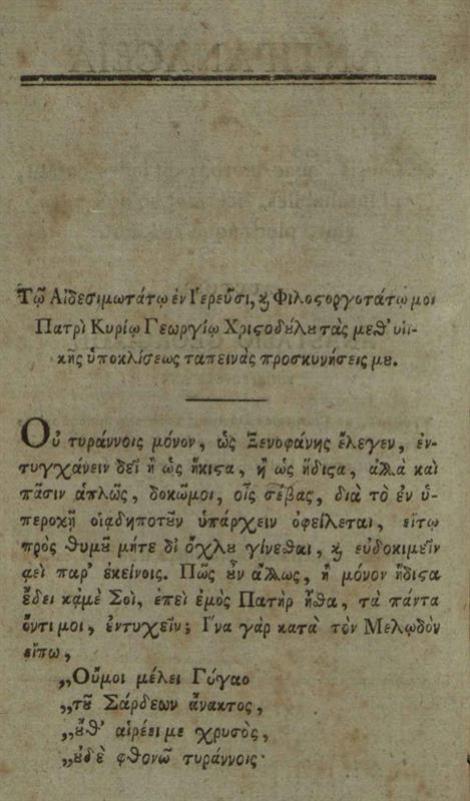 Τῷ Αἰδεσιμωτάτῳ ἐν Ἱερεῦσι, ϗ Φιλοϛοργοτάτῳ μοι
Πατρὶ Κυρίῳ Γεωργίῳ Χριϛοδȣ́λȣ τὰς μεθ' υἱι-
κῆς ὑποκλίσεως ταπεινὰς προσκυνήσεις μȣ.
Οὐ τυράννοις μόνον, ὡς Ξενοφάνης ἔλεγεν, ἐν-
τυγχάνειν δεῖ ἢ ὡς ἥκιϛα, ἢ ὡς ἥδιϛα, ἀλλὰ καὶ
πᾶσιν ἁπλῶς, δοκῶμοι, οἷς σέβας, διὰ τὸ ἐν ὑ-
περοχῇ οἱᾳδηποτȣ͂ν ὑπάρχειν ὀφείλεται, εἴτῳ
πρὸς θυμȣ͂ μήτε δι ὄχλȣ γίνεσθαι, ϗ εὐδοκιμεῖν
ἀεὶ παρ' ἐκείνοις. Πῶς ȣ̓͂ν ἄλλως, ἢ μόνον ἥδιϛα
ἔδει κᾀμὲ Σοὶ, ἐπεὶ ἐμὸς Πατὴρ ἦσθα, τὰ πάντα
ὄντι μοι, ἐντυχεῖν; Ἵνα γὰρ κατὰ τὸν Μελῳδὸν
εἴπω,
„Οὔμοι μέλει Γύγαο
„τȣ͂ Σάρδεων ἄνακτος,
„ȣ̓́θ' αἱρέει με χρυσὸς,
„ȣ̓δὲ φθονῶ τυράννοις·